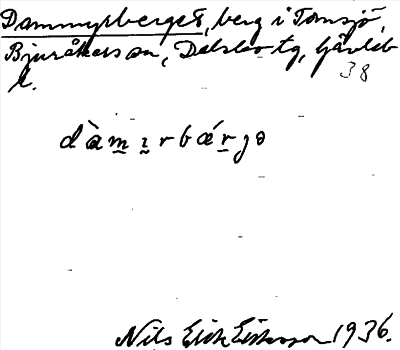 Dammyrberget, berg i Tomsjö,
Bjuråkers sn, Delsbo tg, Gävleb
l. 38
dàm̲ı̰rbǽr̲gə
Nils Erik Eriksson 1936.